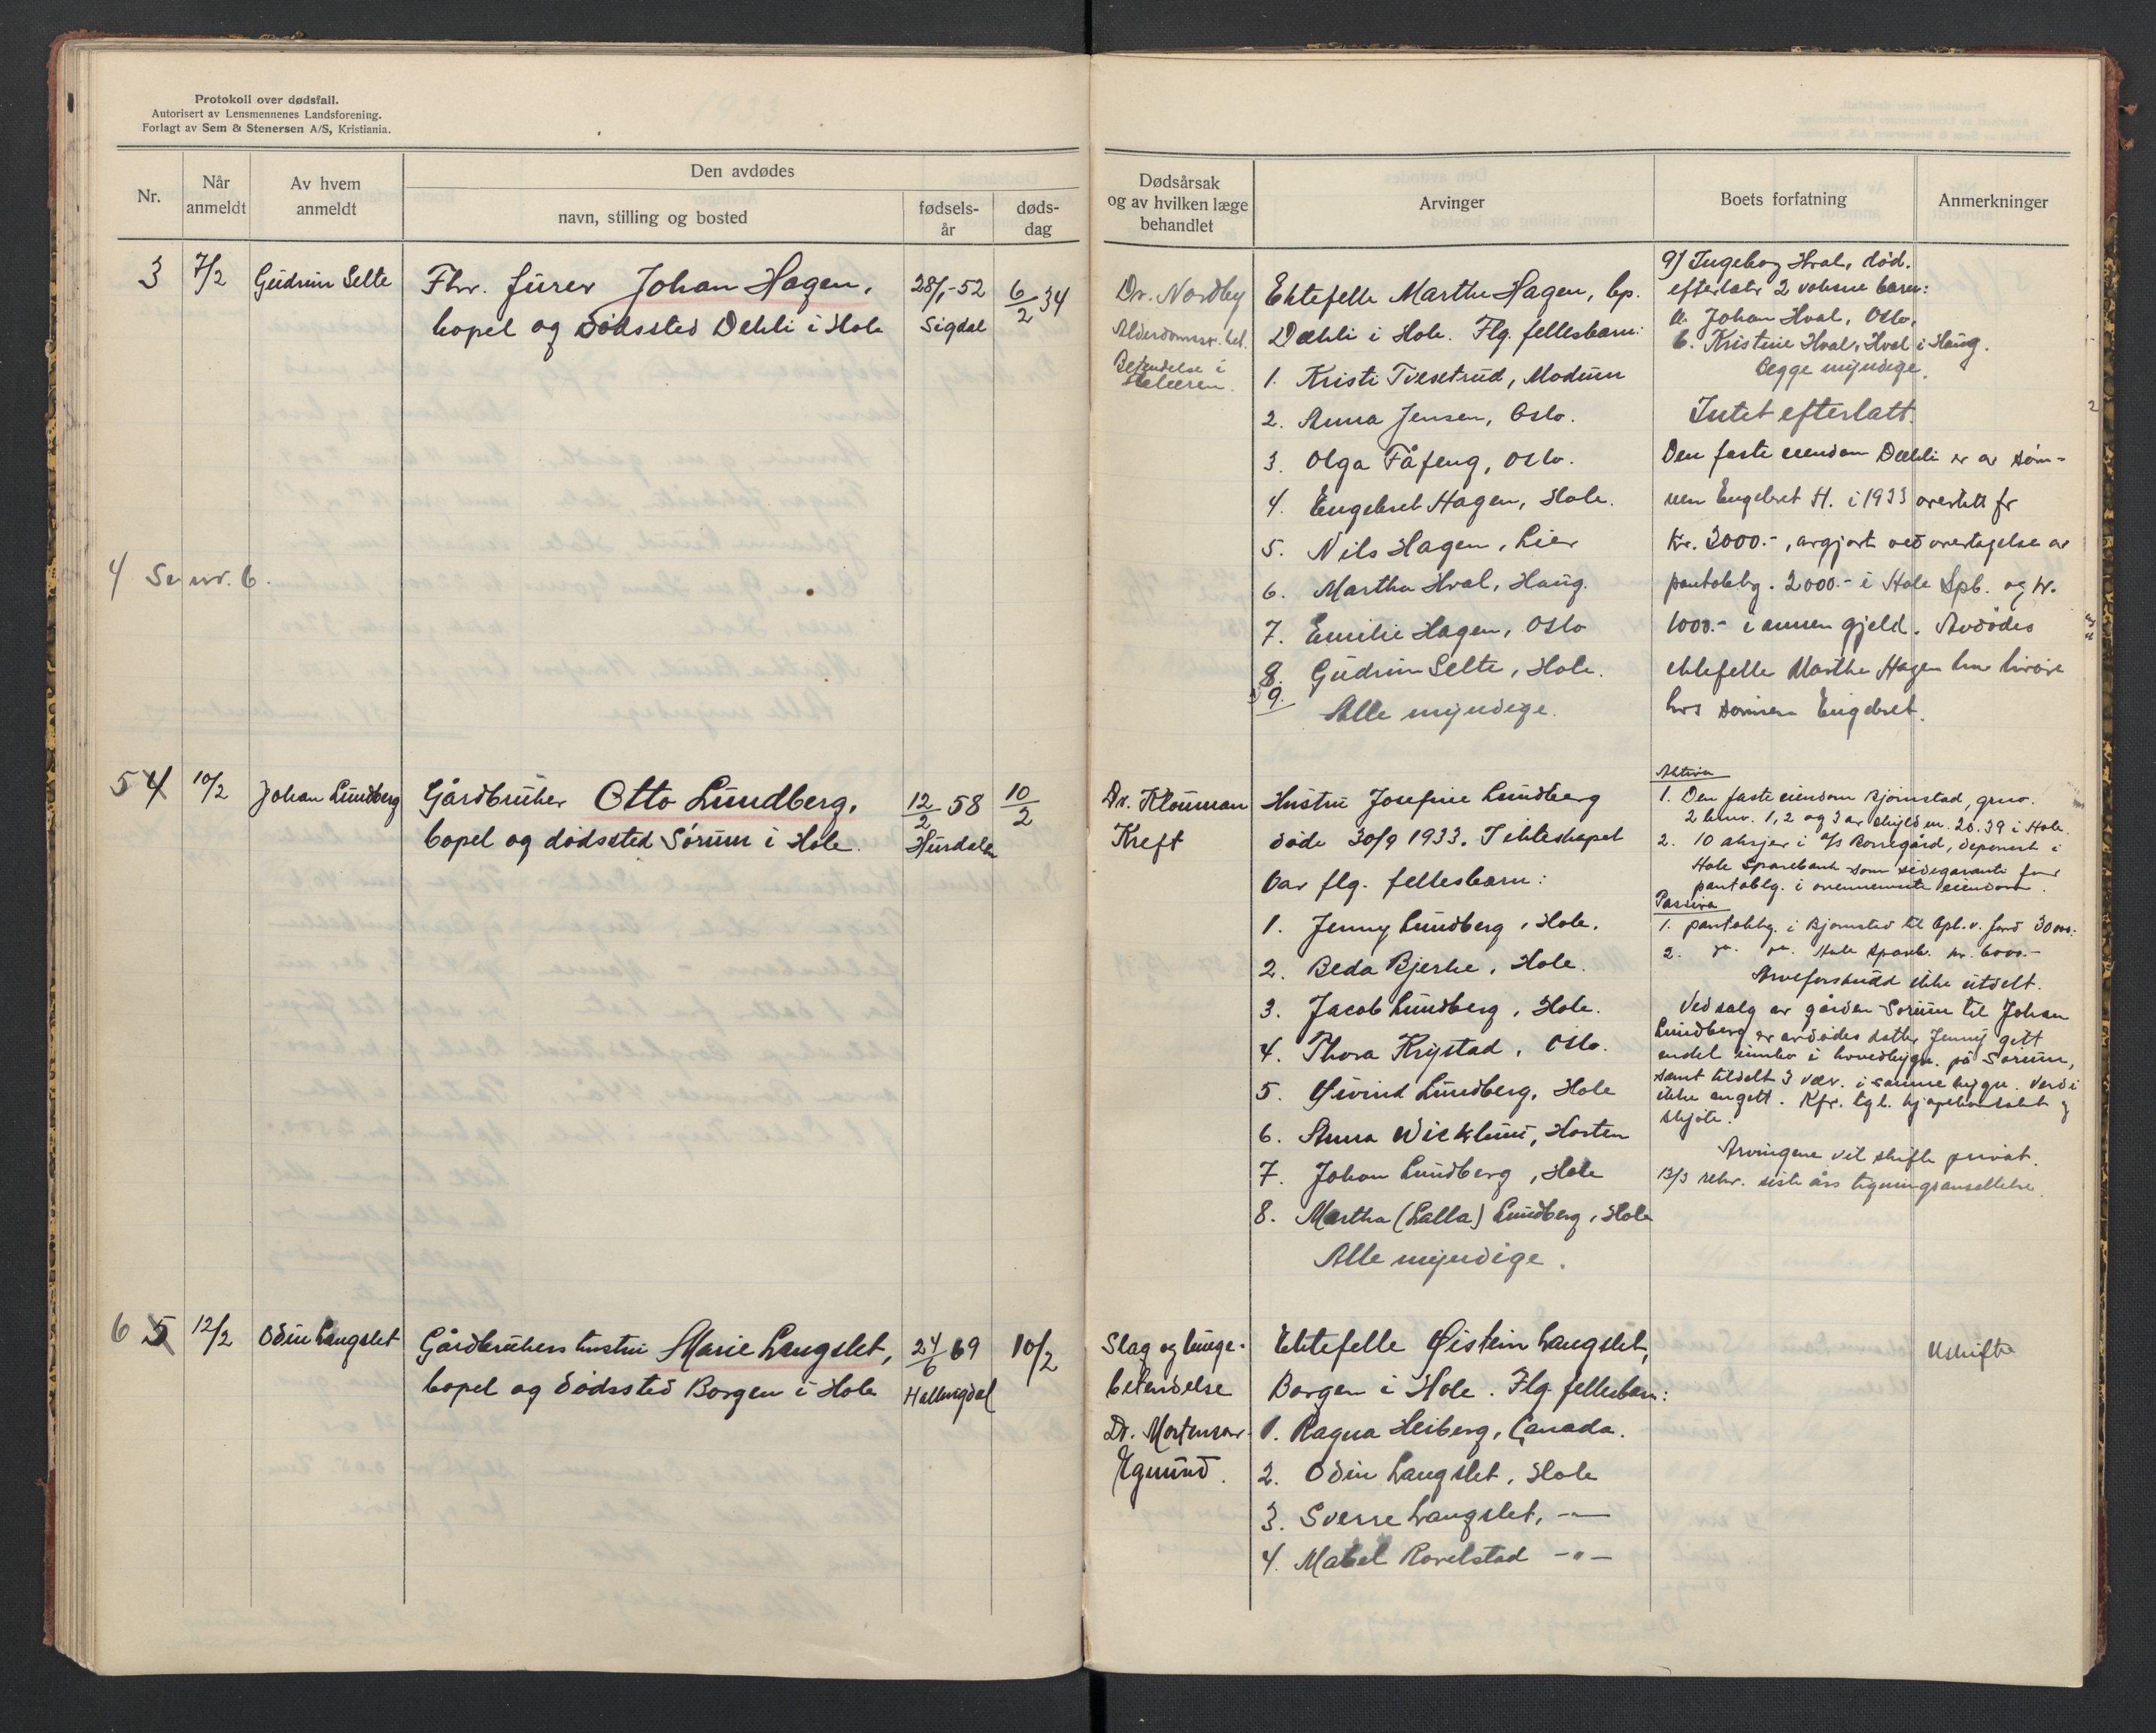 Protokoll over dødsfall.
Autorisert av Lensmennenes Landsforening.
Forlagt av Sem & Stenersen A/S, Kristiania.
Nr.
Når anmeldt
Av hvem anmeldt
Den avdødes
navn, stilling og bosted
fødsels-år
døds-dag
Dødsårsak og av hvilken læge behandlet
Arvinger
Boets forfatning
Anmerkninger
3
7/2
Gudrun Selte
Fhv. furer Johan Hagen,
bopel og dødssted Dehli i Hole
28/1-52
Sigdal
6/2 34
Dr. Nordby
Alderdomssv.
Betendelse i
Ektefelle Marthe Hagen, bp.
Dæhli i Hole. Flg. fellesbarn:
1. Kristi Tvesetrud, Modum
2. Anna Jensen, Oslo.
3. Olga Tåfeng, Oslo.
4. Engebret Hagen, Hole.
5. Nils Hagen, Lier
6. Martha Hval, Haug.
7. Emilie Hagen, Oslo
8. Gudrun Selte, Hole.
9.
Alle myndige.
9) Ingeborg Hval, død.
efterlater 2 voksne barn:
a. Johan Hval, Oslo,
b. Kristine Hval, Hval i Haug.
begge myndige.
Intet efterlatt.
Den faste eiendom Dæhli er av søn-
nen Engebret H. i 1933 overtatt for
kr. 3000.-, avgjort ved overtagelse av
pantoblg. 2000.- i Hole Spb. og kr.
1000.- i annen gjeld. Avdødes
ektefelle Marthe Hagen har livøre
hos sønnen Engebret.
4 Se nr. 6.
5 4
10/2
Johan Lundberg
Gårdbruker Otto Lundberg,
bopel og dødssted Sørum i Hole.
12/2 58
Hurdalen
10/2
Dr. Klouman
Kreft
Hustru Josefine Lundberg
døde 30/9 1933. I ekteskapet
var flg. fellesbarn:
1. Jenny Lundberg, Hole.
2. Beda Bjerke, Hole.
3. Jacob Lundberg, Hole.
4. Thora Krystad, Oslo.
5. Øivind Lundberg, Hole
6. Anna Wicklund, Horten
7. Johan Lundberg, Hole
8. Martha (Lalla) Lundberg, Hole
Alle myndige.
Aktiva
1. Den faste eiendom Bjørnstad, gnr.
2 bnr. 1, 2 og 3 av skyld m. 20.39 i Hole.
2. 10 aksjer i A/S Borregård, deponert i
Hole Sparebank som sidegaranti for
pantoblg. i ovennevnte eiendom.
Passiva
1. pantoblg. i Bjørnstad til Opl. v. fond 30000.-
2. Hole Spareb. kr. 6000.-
Arveforskudd ikke utdelt.
Ved salg av gården Sørum til Johan
Lundberg er avdødes datter Jenny gitt
endel innbo i hovedbygn. på Sørum,
samt tildelt 3 vær. i samme bygn. Verdi
ikke angitt. Kfr. tgl. kjøpekontrakt og
skjøte.
Arvingene vil skifte privat.
13/3 rekv. siste års ligningsansettelse.
6 5
12/2
Odin Langslet
Gårdbrukers hustru Marie Langslet,
bopel og dødssted Borgen i Hole
24/6 69
Hallingdal
10/2
Slag og lunge-
betendelse
Dr. Mortensen-
Egnund.
Ektefelle Øistein Langslet,
Borgen i Hole. Flg. fellesbarn:
1. Ragna Heiberg, Canada.
2. Odin Langslet, Hole
3. Sverre Langslet, -"-
4. Mabel Ravelstad -"-
Uskifte